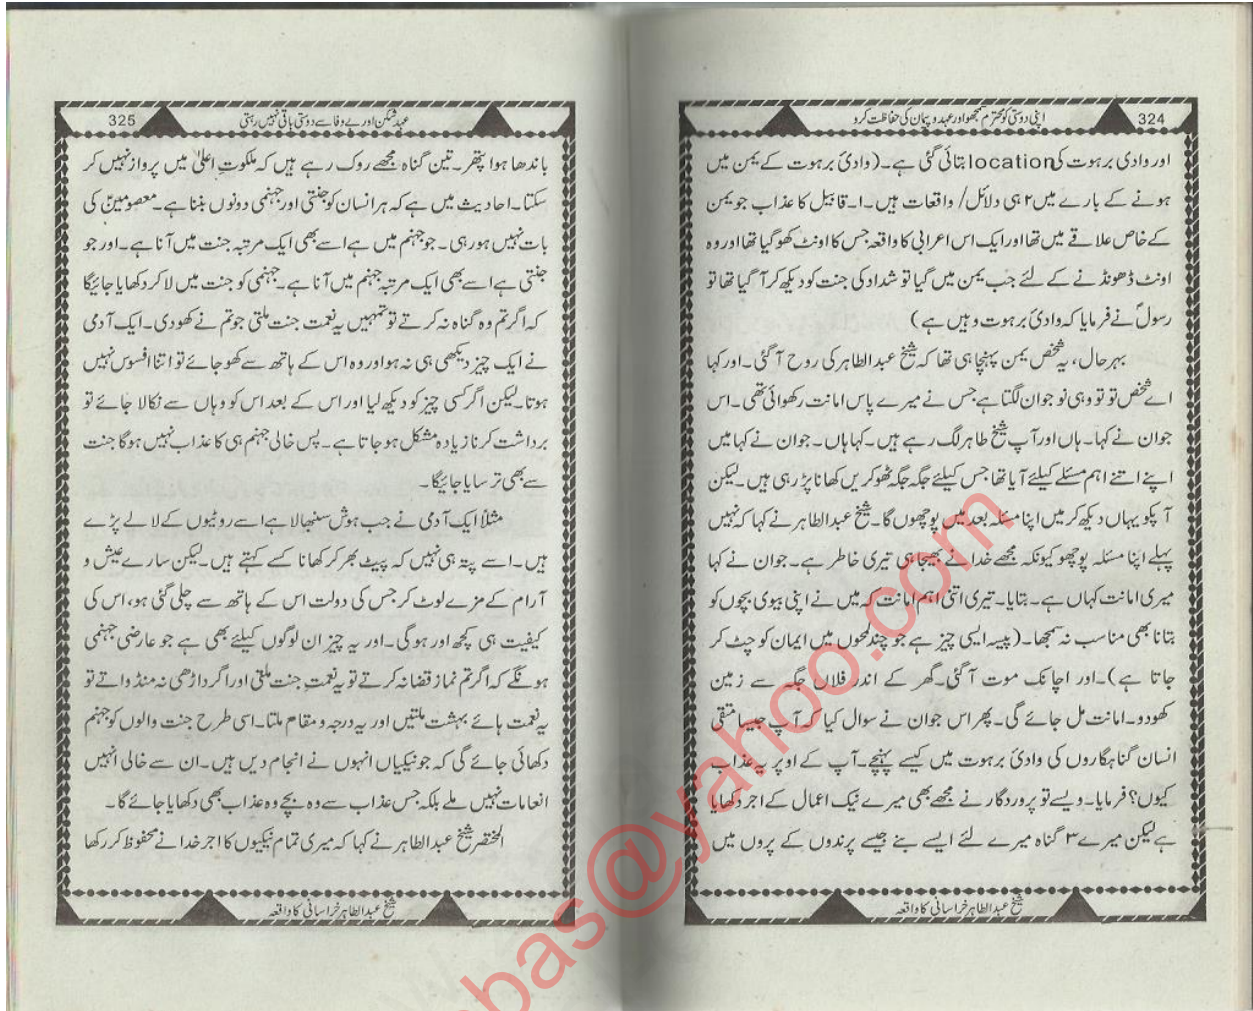 324
اپنی دوستی کو محترم سمجھو اور عہد و پیمان کی حفاظت کرو
اور وادی برہوت کی location بتائی گئی ہے۔ (وادیٔ برہوت کے یمن میں
ہونے کے بارے میں ۲ ہی دلائل/ واقعات ہیں۔ ا۔ قابیل کا عذاب جو یمن
کے خاص علاقے میں تھا اور ایک اس اعرابی کا واقعہ جس کا اونٹ کھو گیا تھا اور وہ
اونٹ ڈھونڈنے کے لئے جب یمن میں گیا تو شداد کی جنت کو دیکھ کر آ گیا تھا تو
رسولؐ نے فرمایا کہ وادیٔ برہوت وہیں ہے)
بہر حال، یہ شخص یمن پہنچا ہی تھا کہ شیخ عبدالطاہر کی روح آ گئی۔ اور کہا
اے شخص تو تو وہی نوجوان لگتا ہے جس نے میرے پاس امانت رکھوائی تھی۔ اس
جوان نے کہا۔ ہاں اور آپ شیخ طاہر لگ رہے ہیں۔ کہا ہاں۔ جوان نے کہا میں
اپنے اتنے اہم مسئلے کیلئے آیا تھا جس کیلئے جگہ جگہ ٹھوکریں کھانا پڑ رہی ہیں۔ لیکن
آپکو یہاں دیکھ کر میں اپنا مسئلہ بعد میں پوچھوں گا۔ شیخ عبدالطاہر نے کہا کہ نہیں
پہلے اپنا مسئلہ پوچھو کیونکہ مجھے خدا نے بھیجا ہی تیری خاطر ہے۔ جوان نے کہا
میری امانت کہاں ہے۔ بتایا۔ تیری اتنی اہم امانت کہ میں نے اپنی بیوی بچوں کو
بتانا بھی مناسب نہ سمجھا۔ (پیسہ ایسی چیز ہے جو چند لمحوں میں ایمان کو چٹ کر
جاتا ہے)۔ اور اچانک موت آ گئی۔ گھر کے اندر فلاں جگہ سے زمین
کھودو۔ امانت مل جائے گی۔ پھر اس جوان نے سوال کیا کہ آپ جیسا متقی
انسان گناہگاروں کی وادیٔ برہوت میں کیسے پہنچے۔ آپ کے اوپر یہ عذاب
کیوں؟ فرمایا۔ ویسے تو پروردگار نے مجھے بھی میرے نیک اعمال کے اجر دکھایا
ہے لیکن میرے ۳ گناہ میرے لئے ایسے بنے جیسے پرندوں کے پروں میں
شیخ عبدالطاہر خراسانی کا واقعہ
325
عہد شکن اور بے وفا سے دوستی باقی نہیں رہتی
باندھا ہوا پتھر۔ تین گناہ مجھے روک رہے ہیں کہ ملکوتِ اعلیٰ میں پرواز نہیں کر
سکتا۔ احادیث میں ہے کہ ہر انسان کو جنتی اور جہنمی دونوں بننا ہے۔ معصومینؑ کی
بات نہیں ہو رہی۔ جو جہنم میں ہے اسے بھی ایک مرتبہ جنت میں آنا ہے۔ اور جو
جنتی ہے اسے بھی ایک مرتبہ جہنم میں آنا ہے۔ جہنمی کو جنت میں لا کر دکھایا جائیگا
کہ اگر تم وہ گناہ نہ کرتے تو تمہیں یہ نعمت جنت ملتی جو تم نے کھودی۔ ایک آدمی
نے ایک چیز دیکھی ہی نہ ہو اور وہ اس کے ہاتھ سے کھو جائے تو اتنا افسوس نہیں
ہوتا۔ لیکن اگر کسی چیز کو دیکھ لیا اور اس کے بعد اس کو وہاں سے نکالا جائے تو
برداشت کرنا زیادہ مشکل ہو جاتا ہے۔ پس خالی جہنم ہی کا عذاب نہیں ہو گا جنت
سے بھی ترسایا جائیگا۔
مثلاً ایک آدمی نے جب ہوش سنبھالا ہے اسے روٹیوں کے لالے پڑے
ہیں۔ اسے پتہ ہی نہیں کہ پیٹ بھر کر کھانا کسے کہتے ہیں۔ لیکن سارے عیش و
آرام کے مزے لوٹ کر جس کی دولت اس کے ہاتھ سے چلی گئی ہو، اس کی
کیفیت ہی کچھ اور ہو گی۔ اور یہ چیز ان لوگوں کیلئے بھی ہے جو عارضی جہنمی
ہونگے کہ اگر تم نماز قضا نہ کرتے تو یہ نعمتِ جنت ملتی اور اگر داڑھی نہ منڈواتے تو
یہ نعمت ہائے بہشت ملتیں اور یہ درجہ و مقام ملتا۔ اسی طرح جنت والوں کو جہنم
دکھائی جائے گی کہ جو نیکیاں انہوں نے انجام دیں ہیں۔ ان سے خالی انہیں
انعامات نہیں ملے بلکہ جس عذاب سے وہ بچے وہ عذاب بھی دکھایا جائے گا۔
المختصر شیخ عبدالطاہر نے کہا کہ میری تمام نیکیوں کا اجر خدا نے محفوظ کر رکھا
شیخ عبدالطاہر خراسانی کا واقعہ
bas@yahoo.com